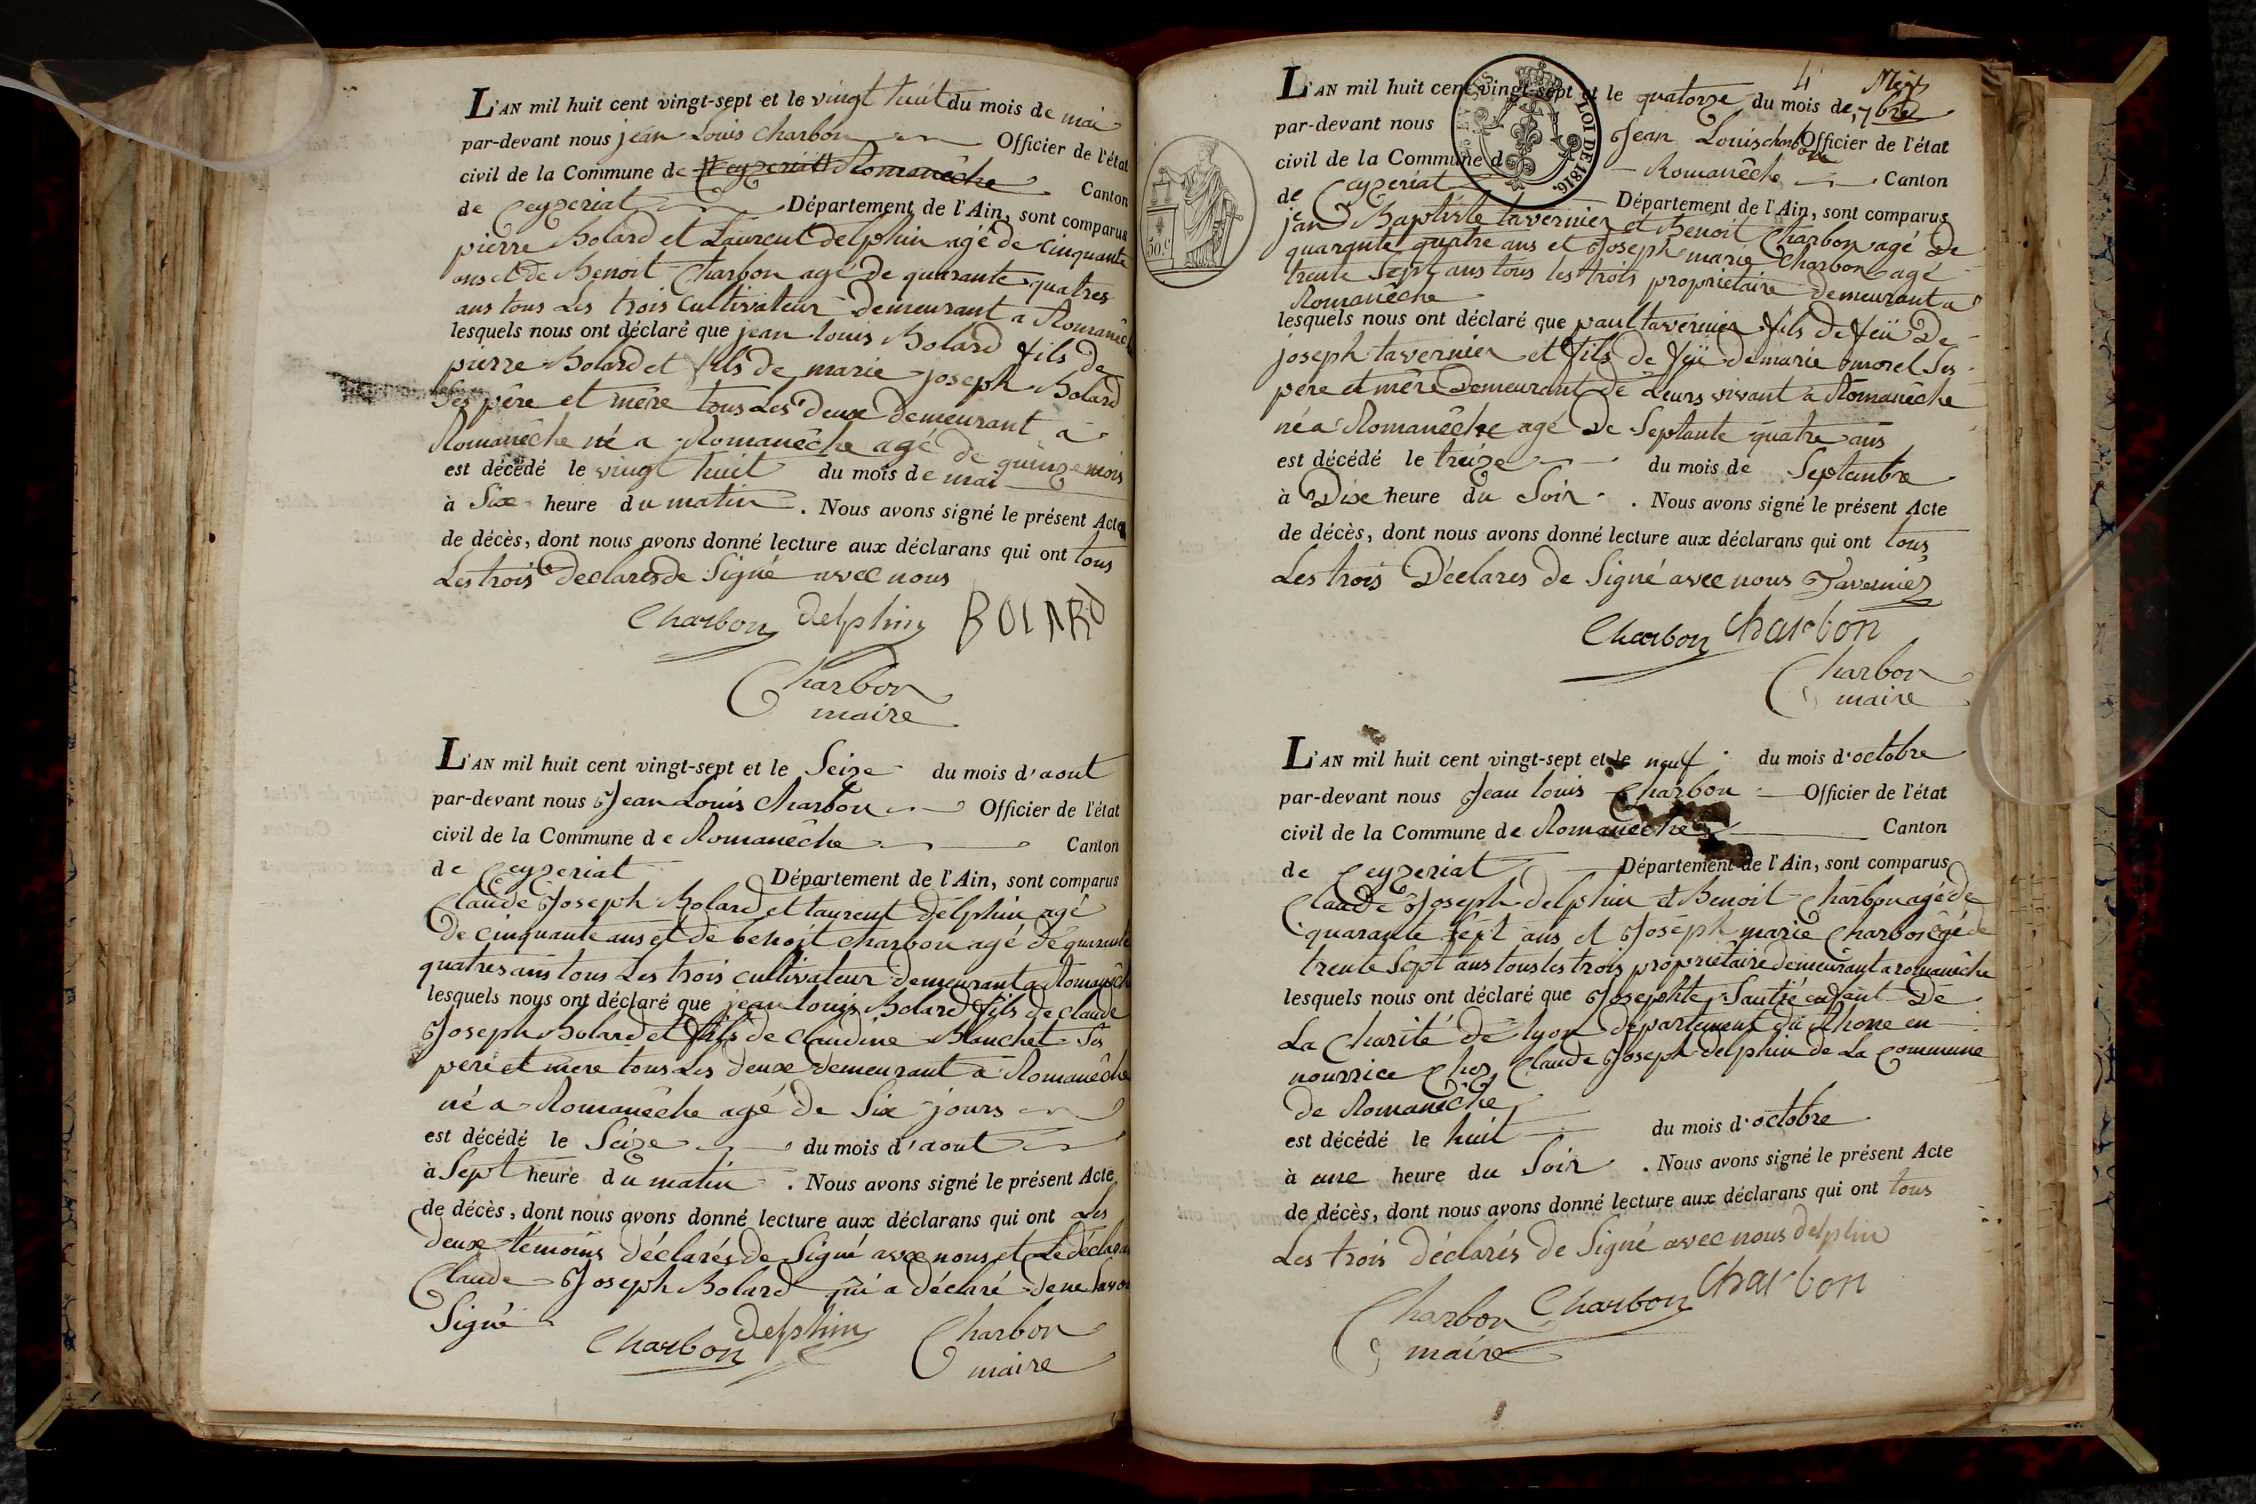 L'AN mil huit cent vingt-sept et le vingt huit du mois de mai
par-devant nous jean Louis Charbon Officier de l'état
civil de la Commune de Ceyzeriat Romanêche Canton
de Ceyzeriat Département de l'Ain, sont comparus
pierre Bolard et Laurent delphin agé de cinquante
ans et de Benoit Charbon agé de quarante quatres
ans tous Les trois Cultivateur Demeurant a Romanêche
lesquels nous ont déclaré que jean louis Bolard fils de
pierre Bolard et fils de marie joseph Bolard
Ses père et mère tous Les Deux demeurant à
Romanêche né a Romanêche agé de quinze mois
est décédé le vingt huit du mois de mai
à Six heure du matin. Nous avons signé le présent Acte
de décès, dont nous avons donné lecture aux déclarans qui ont tous
Les trois déclarés de Signé avec nous
Charbon delphin BOLARD
Charbon
maire
L'AN mil huit cent vingt-sept et le Seize du mois d'aout
par-devant nous Jean Louis Charbon Officier de l'état
civil de la Commune de Romanêche Canton
de Ceyzeriat Département de l'Ain, sont comparus
Claude Joseph Bolard et laurent delphin agé
De cinquante ans et de benoit charbon agé de quarante
quatres ans tous Les trois cultivateur demeurant a Romanêche
lesquels nous ont déclaré que jean louis Bolard fils de claude
Joseph Bolard et fils de claudine Blanchet Ses
père et mere tous Les Deux Demeurant a Romanêche
né a Romanêche agé de Six jours
est décédé le Seize du mois d'aout
à Sept heure du matin. Nous avons signé le présent Acte
de décès, dont nous avons donné lecture aux déclarans qui ont Les
deux témoins déclarés de Signé avec nous et Le déclarant
Claude Joseph Bolard qui a déclaré de ne Savoir
Signé
Charbon delphin Charbon
maire
4 Mests
L'AN mil huit cent vingt-sept et le quatorze du mois de 7bre
par-devant nous Jean Louis charbon Officier de l'état
civil de la Commune de Romanêche Canton
de Ceyzeriat Département de l'Ain, sont comparus
LOI DE 1816.
50.c
jean Baptiste tavernier et Benoit Charbon agé De
quarante quatre ans et Joseph marie Charbon agé
trente Sept ans tous les trois propriétaire demeurant a
Romanêche
lesquels nous ont déclaré que paul tavernier fils De feü De
joseph tavernier et fils de feü de marie morel Ses
père et mère Demeurant de Leurs vivant a Romanêche
né a Romanêche agé De Septante quatre ans
est décédé le treize du mois de Septembre
à Dix heure du Soir. Nous avons signé le présent Acte
de décès, dont nous avons donné lecture aux déclarans qui ont tous
Les trois Déclares de Signé avec nous Tavernier
Charbon Charbon
Charbon
maire
L'AN mil huit cent vingt-sept et le neuf du mois d'octobre
par-devant nous Jean louis Charbon Officier de l'état
civil de la Commune de Romanêche Canton
de Ceyzeriat Département de l'Ain, sont comparus
Claude Joseph delphin et Benoit Charbon agé de
quarante sept ans et Joseph marie Charbon agé de
trente Sept ans tous les trois propriétaire demeurant a romanêche
lesquels nous ont déclaré que Josephte Sautié enfent De
La Charité de lyon département du Rhone en
nourrice chez Claude Joseph delphin de La Commune
de Romanêche
est décédé le huit du mois d'octobre
à une heure du Soir. Nous avons signé le présent Acte
de décès, dont nous avons donné lecture aux déclarans qui ont tous
Les trois déclarés de Signé avec nous delphin
Charbon Charbon Charbon
maire